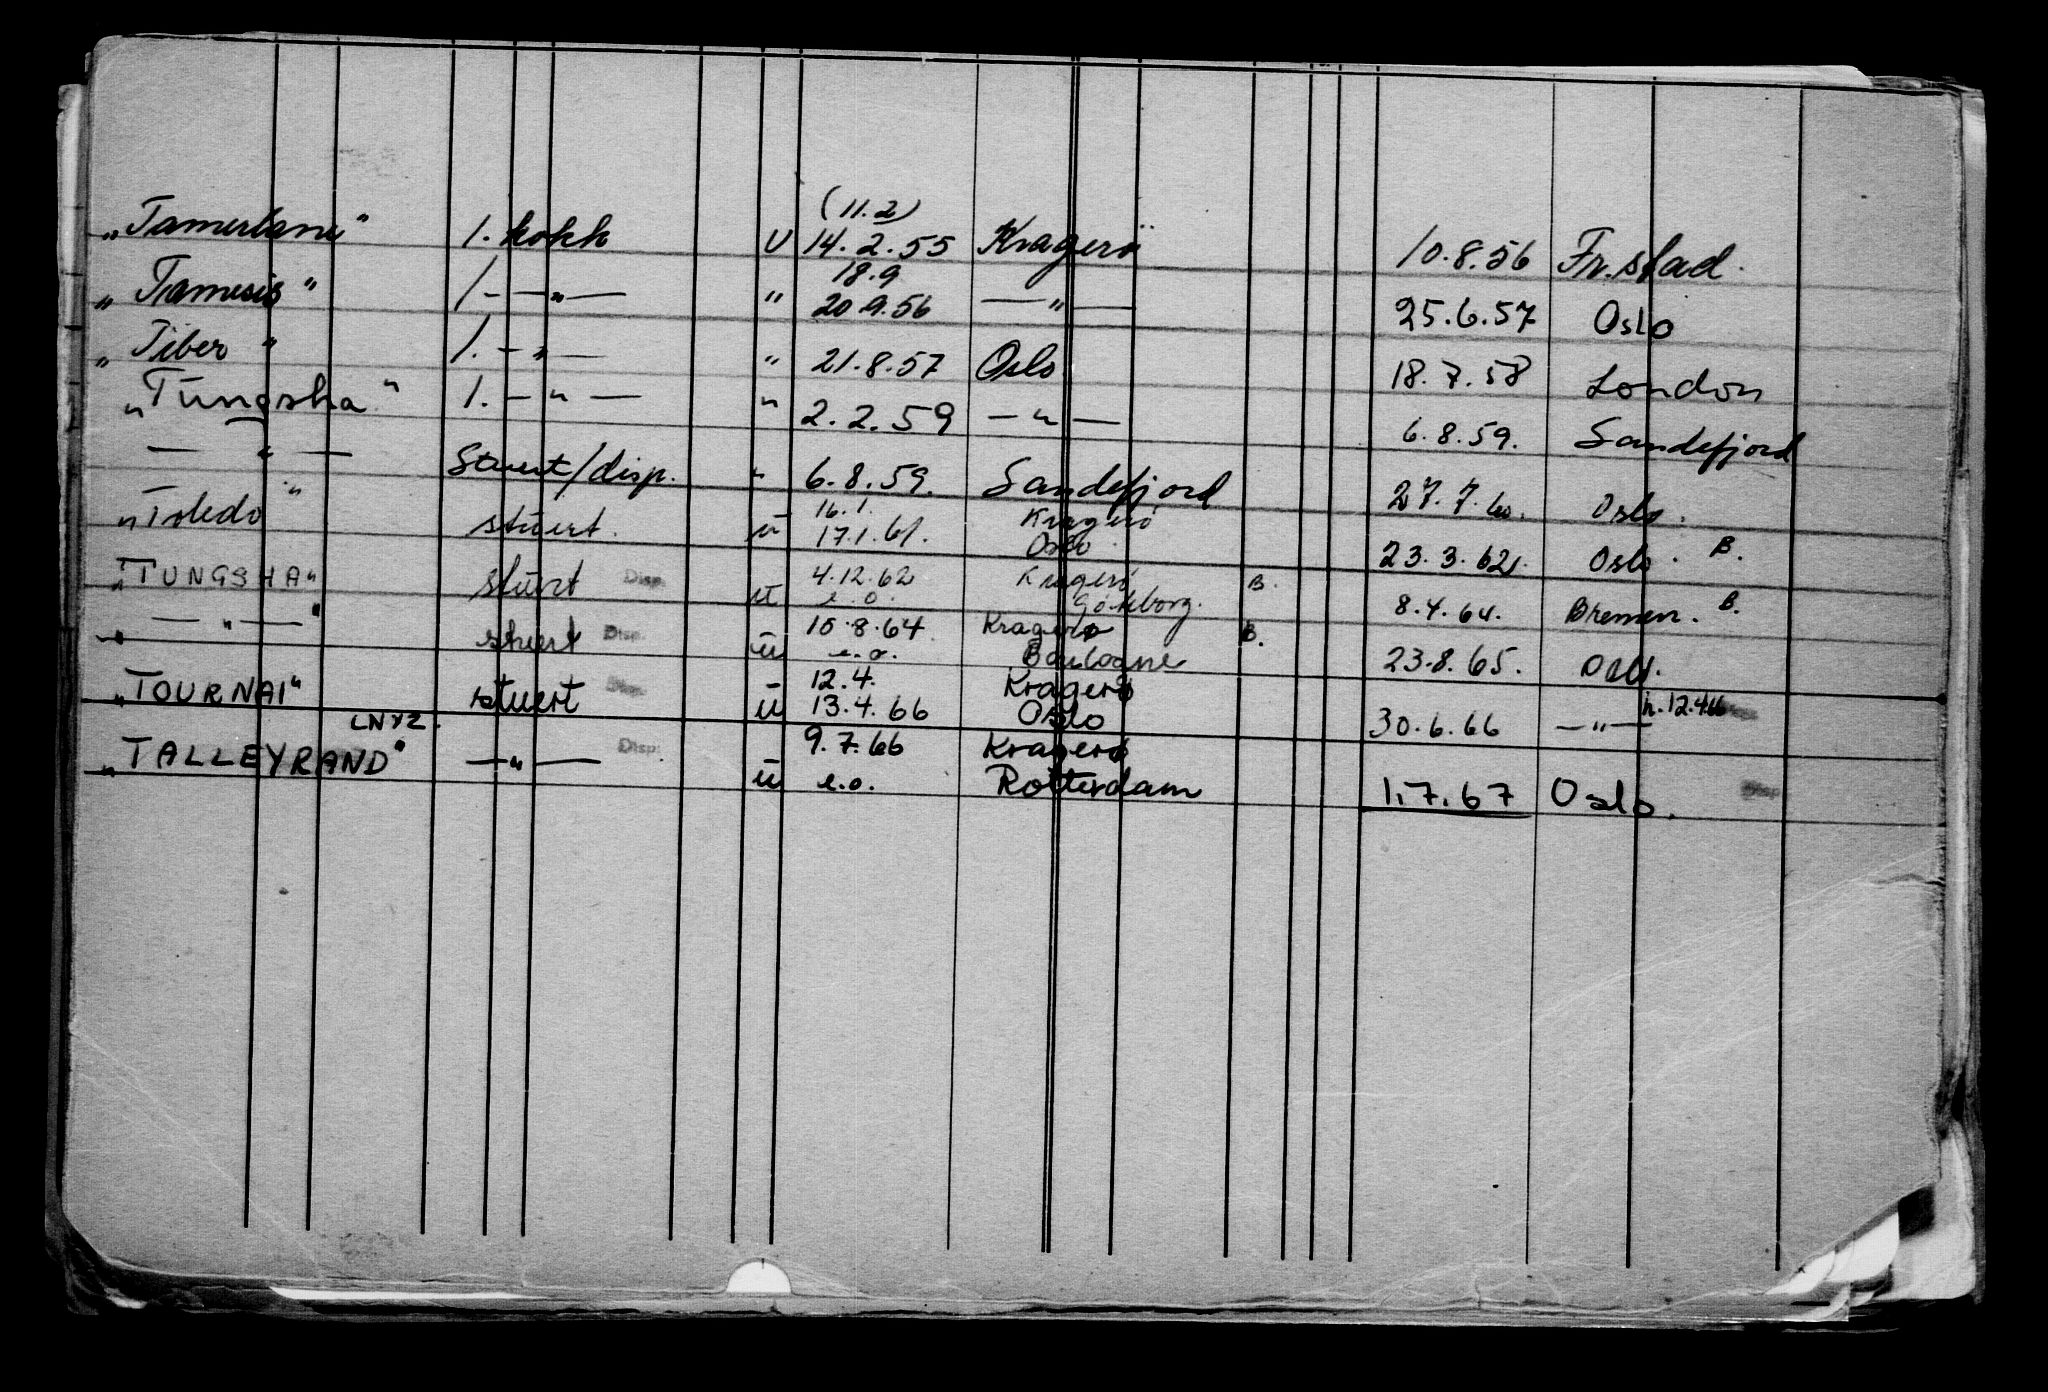 (11.2)
„Tamerlane" 1. kokk U 14.2.55 Kragerö 10.8.56 Fr.stad.
18.9
„Tamesis" 1. —„— " 20.9.56 —"— 25.6.57 Oslo
„Tiber" 1. —„— " 21.8.57 Oslo 18.7.58 London
„Tūngsha" 1. —"— " 2.2.59 —"— 6.8.59. Sandefjord
—"— Stuert/disp. " 6.8.59. Sandefjord 27.7.60. Oslo.
16.1. Kragerö
„Toledo" stūert. ū 17.1.61. Oslo 23.3.62. Oslo. B.
4.12.62 Kragerö B.
„TUNGSHA" stūert Disp. ū e.o. Göteborg. 8.4.64. Bremen. B.
10.8.64 Kragerø B.
„—"—" stuert Disp. ū e.o. Boulogne 23.8.65. Oslo.
12.4. Kragerø
„TOURNAI" stuert Disp. ū 13.4.66 Oslo 30.6.66 —"— h.12.4.66
LNYZ. 9.7.66 Kragerø
„TALLEYRAND" —"— Disp. ū e.o. Rotterdam 1.7.67 Oslo. Disp.